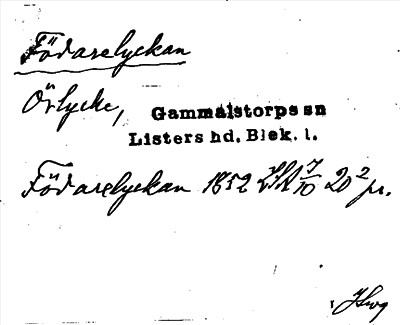 Födarelyckan
Örlycke, Gammalstorps sn
Listers hd. Blek. l.
Födarelyckan 1852 LSA 7/10 20² pr.